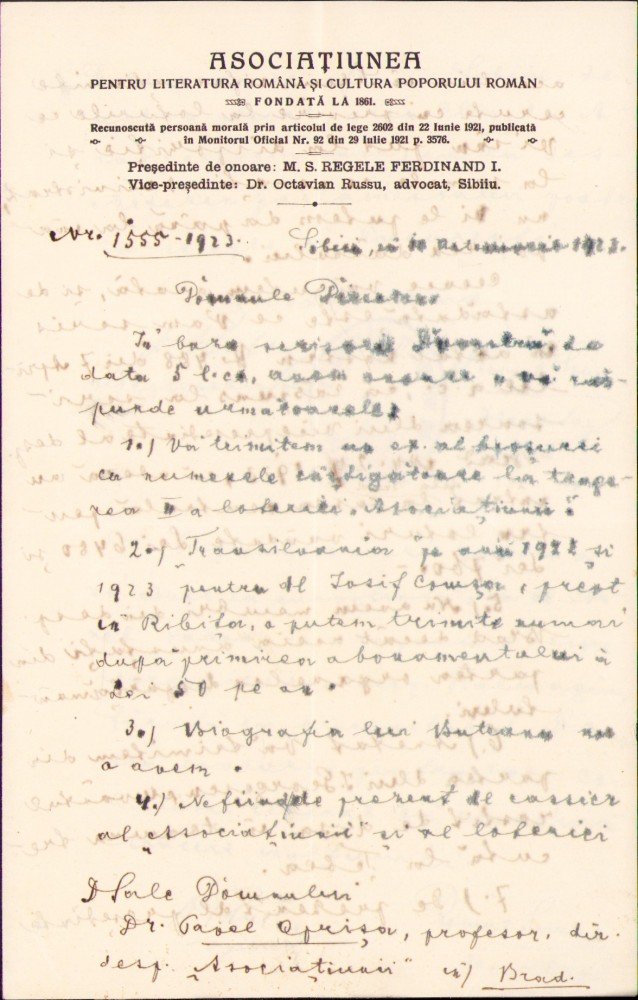 ASOCIAȚIUNEA
PENTRU LITERATURA ROMÂNĂ ȘI CULTURA POPORULUI ROMÂN
FONDATĂ LA 1861.
Recunoscută persoană morală prin articolul de lege 2602 din 22 Iunie 1921, publicată
în Monitorul Oficial Nr. 92 din 29 Iulie 1921 p. 3576.
Președinte de onoare: M. S. REGELE FERDINAND I.
Vice-președinte: Dr. Octavian Russu, advocat, Sibiiu.
Nr. 1555-1923. Sibiiu, în 1923.
Domnule Director,
În baza scrisorii Dvoastră, de
data 5 l.c., avem onoare a vă răs-
punde următoarele:
1.) Vă trimitem un ex. al broșurei
cu numerele câștigătoare la trage-
rea II a loteriei „Asociațiunii".
2.) „Transilvania" pe anii 1922 și
1923 pentru dl Iosif Comșa, preot
în Ribița, o putem trimite numai
după primirea abonamentului à
Lei 50 pe an.
3.) Biografia lui Buteanu nu
o avem.
4.) Nefiind de prezent dl cassier
al „Asociațiunii" și al loteriei
D Sale Domnului
Dr. Pavel Oprișa, profesor, dir.
desp. „Asociațiunii" în Brad.